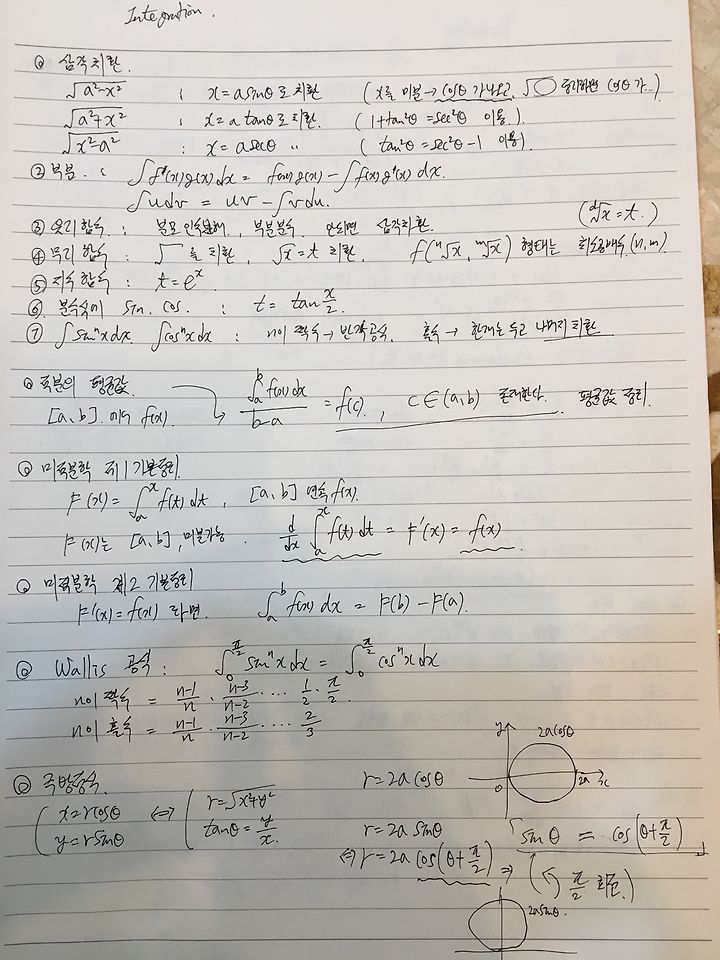 Integration.
① 삼각치환.
√(a²-x²) : x = a sinθ로 치환 (x를 미분 → cosθ가 나오고, √◯ 정리하면 cosθ가..)
√(a²+x²) : x = a tanθ로 치환. (1+tan²θ = sec²θ 이용.)
√(x²-a²) : x = a secθ 〃 (tan²θ = sec²θ-1 이용).
② 부분 : ∫f'(x)g(x)dx = f(x)g(x) - ∫f(x)g'(x)dx.
∫udv = uv - ∫vdu.
③ 유리함수 : 분모 인수분해, 부분분수. 안되면 삼각치환.
④ 무리함수 : √ 를 치환, √x = t 치환. f(ⁿ√x, ᵐ√x) 형태는 최소공배수(n, m) (ᵈ√x = t.)
⑤ 지수함수 : t = eˣ
⑥ 분수식에 sin. cos. : t = tan x/2.
⑦ ∫sinⁿxdx ∫cosⁿxdx : n이 짝수 → 반각공식. 홀수 → 한개는 두고 나머지 치환
◎ 적분의 평균값.
[a, b]. 에서 f(x). → ∫ₐᵇ f(x)dx / (b-a) = f(c), c∈(a,b) 존재한다. 평균값 정리.
◎ 미적분학 제1기본정리.
F(x) = ∫ₐˣ f(t)dt, [a, b] 연속 f(x).
F(x)는 [a, b], 미분가능. d/dx ∫ₐˣ f(t)dt = F'(x) = f(x)
◎ 미적분학 제2기본정리
F'(x) = f(x) 라면. ∫ₐᵇ f(x)dx = F(b) - F(a).
◎ Wallis 공식 : ∫₀^(π/2) sinⁿxdx = ∫₀^(π/2) cosⁿxdx
n이 짝수 = (n-1)/n · (n-3)/(n-2) ···· 1/2 · π/2.
n이 홀수 = (n-1)/n · (n-3)/(n-2) ···· 2/3
◎ 극방정식.
x = rcosθ ⇔ r = √(x²+y²)
y = rsinθ tanθ = y/x.
r = 2a cosθ
y 2acosθ
0 2a x
r = 2a sinθ sinθ = cos(θ+π/2)
⇔ r = 2a cos(θ+π/2) ⇒ (↰ π/2 회전.)
2asinθ.